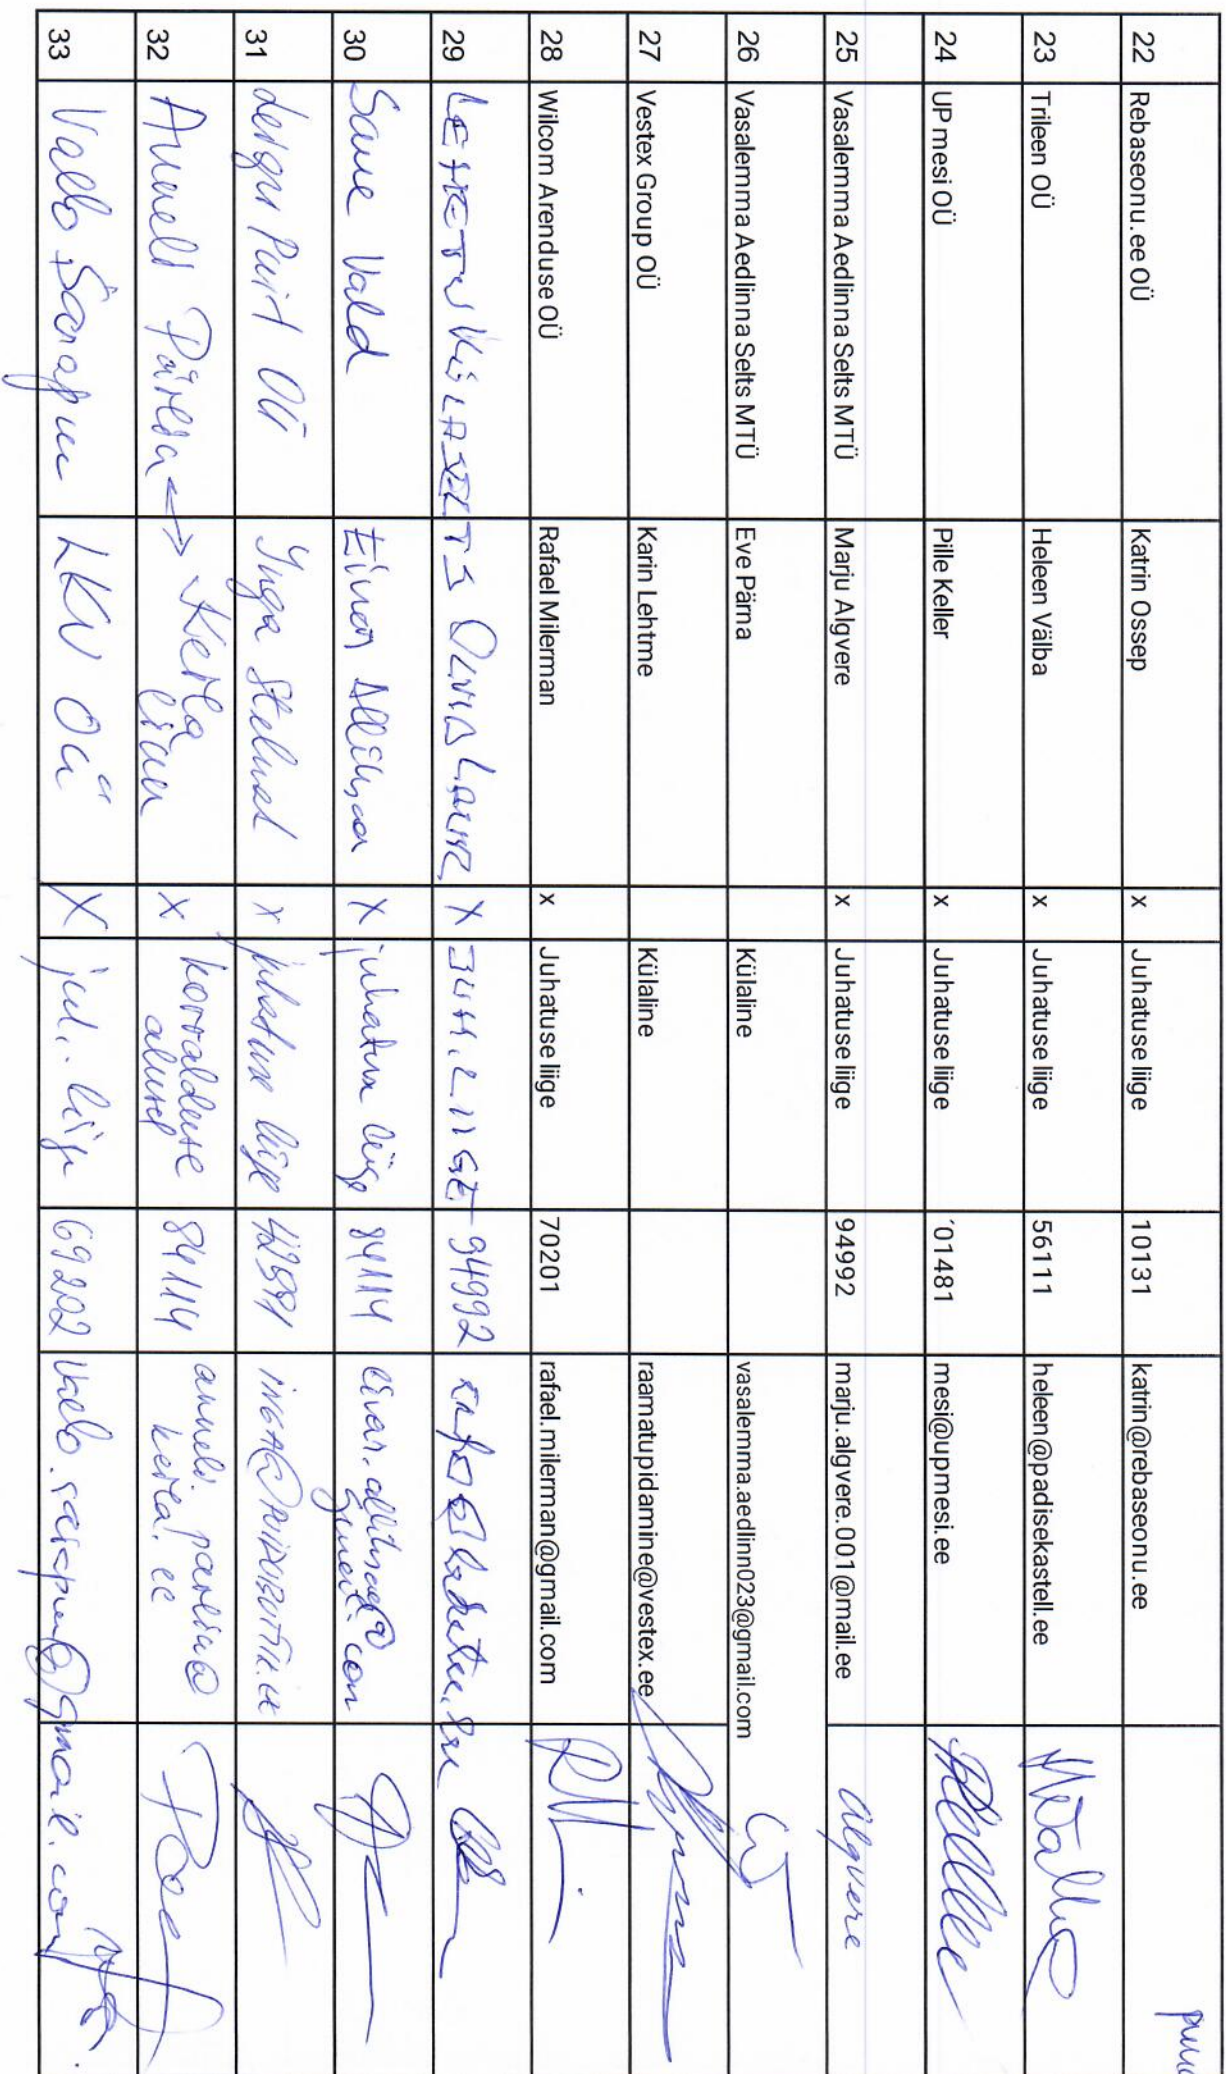 22 Rebaseonu.ee OÜ Katrin Ossep x Juhatuse liige 10131 katrin@rebaseonu.ee
23 Trileen OÜ Heleen Välba x Juhatuse liige 56111 heleen@padisekastell.ee
24 UP mesi OÜ Pille Keller x Juhatuse liige ´01481 mesi@upmesi.ee
25 Vasalemma Aedlinna Selts MTÜ Marju Algvere x Juhatuse liige 94992 marju.algvere.001@mail.ee Algvere
26 Vasalemma Aedlinna Selts MTÜ Eve Pärna Külaline vasalemma.aedlinn023@gmail.com
27 Vestex Group OÜ Karin Lehtme Külaline raamatupidamine@vestex.ee
28 Wilcom Arenduse OÜ Rafael Milerman x Juhatuse liige 70201 rafael.milerman@gmail.com
29 LEHETU KÜLASELTS x JUH. LIIGE 94992
30 Saue Vald x juhatuse liige 84114
31 Puit OÜ Inga x juhatuse liige
32 Anneli Pärlin ↔ Kerla x korralduse alusel 84114
33 Vallo Sarapuu LKV OÜ X juh. liige 69202